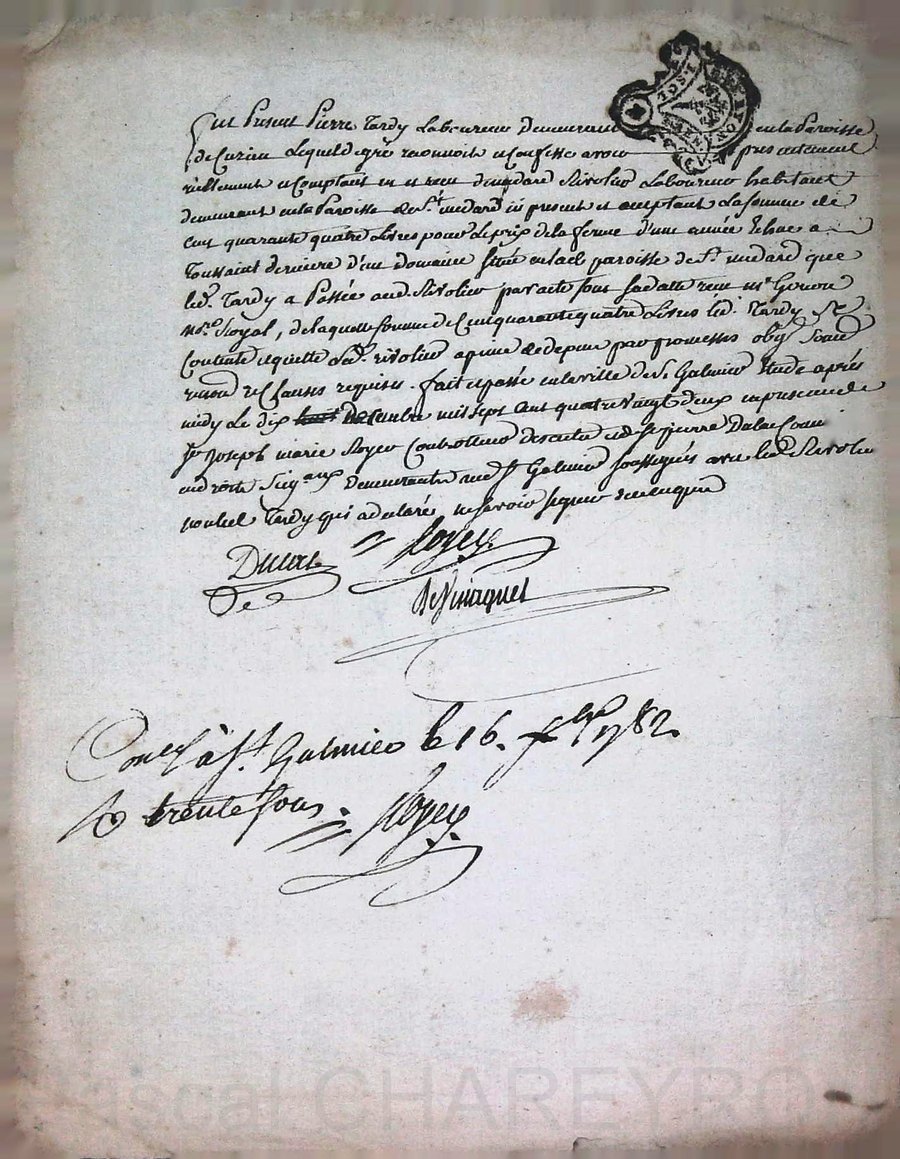 Fut Present Pierre Tardy Laboureur Demeurant en la Paroisse
de Curieu Lequel de gré reconnoit et Confesse avoir presentement
reellement et Comptant eu et receu de medard Rivolier Laboureur habitant
demeurant en la Paroisse de St. medard ici present et acceptant La somme de
Cent quarante quatre Livres pour Le prix de la ferme d'une année Echue a
Toussaint derniere d'un domaine Situé en lad. paroisse de St. medard que
led. Tardy a Passée aud. Rivolier par acte sous sa datte receu Me
No.re Royal, de laquelle somme de Cent quarante quatre Livres led. Tardy Se
Contente et quitte led. rivolier a peine de depens par promesses obligs.
renons. et Clauses requises. fait et passé en la ville de St. Galmier Etude après
midy Le dix decembre mil sept cent quatre vingt deux en presence de
Sr. Joseph marie Royer Controlleur des actes et de Sr. pierre
Demeurants aud. St. Galmier soussignés avec led. Rivolier
non led. Tardy qui a declaré ne savoir signer de ce enquis
Royer
Contlé à St. Galmier le 16. 1782.
R trente sous. Royer
Pascal CHAREYRO